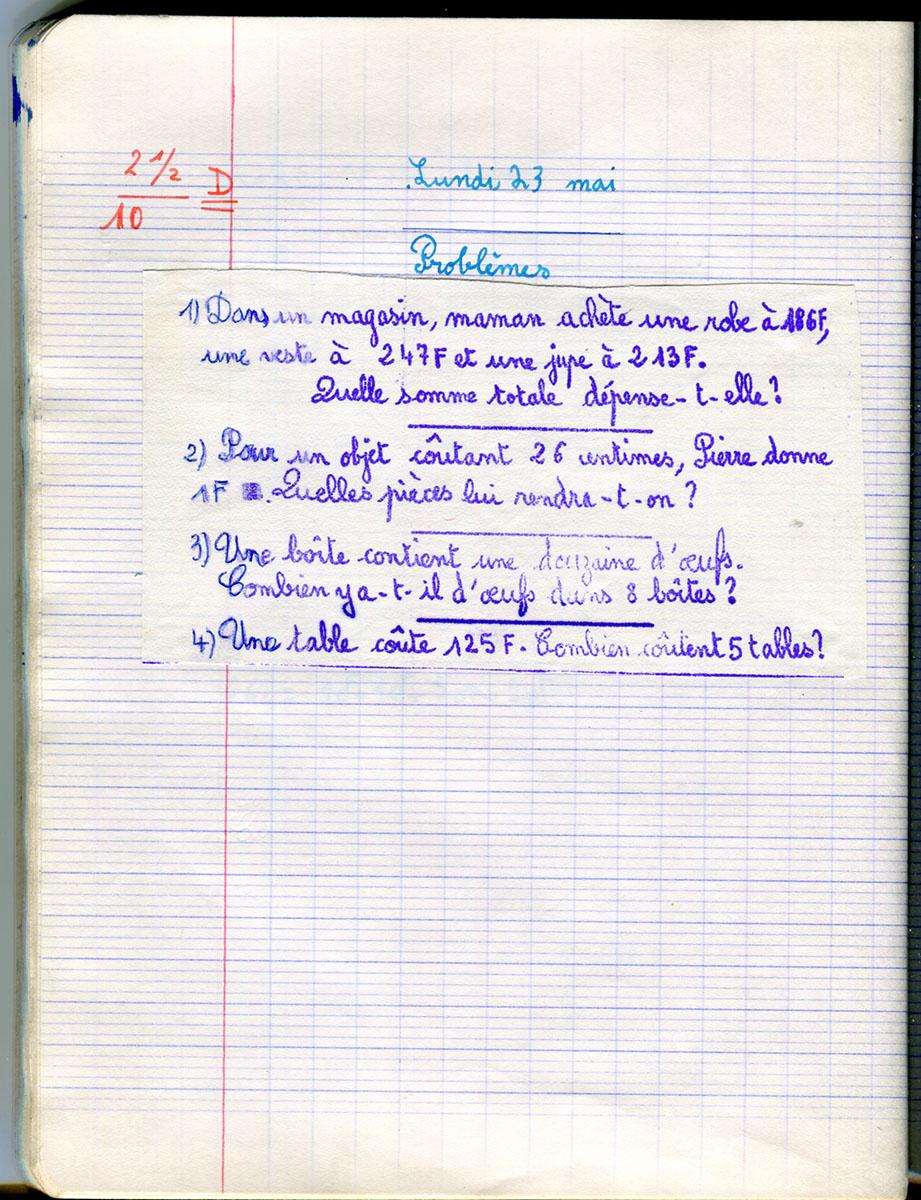 2 1/2
10
D
Lundi 23 mai
Problèmes
1) Dans un magasin, maman achète une robe à 186F,
une veste à 247F et une jupe à 213F.
Quelle somme totale dépense-t-elle?
2) Pour un objet coûtant 26 centimes, Pierre donne
1F . Quelles pièces lui rendra-t-on?
3) Une boîte contient une douzaine d'œufs.
Combien y a-t-il d'œufs dans 8 boîtes?
4) Une table coûte 125F. Combien coûtent 5 tables?